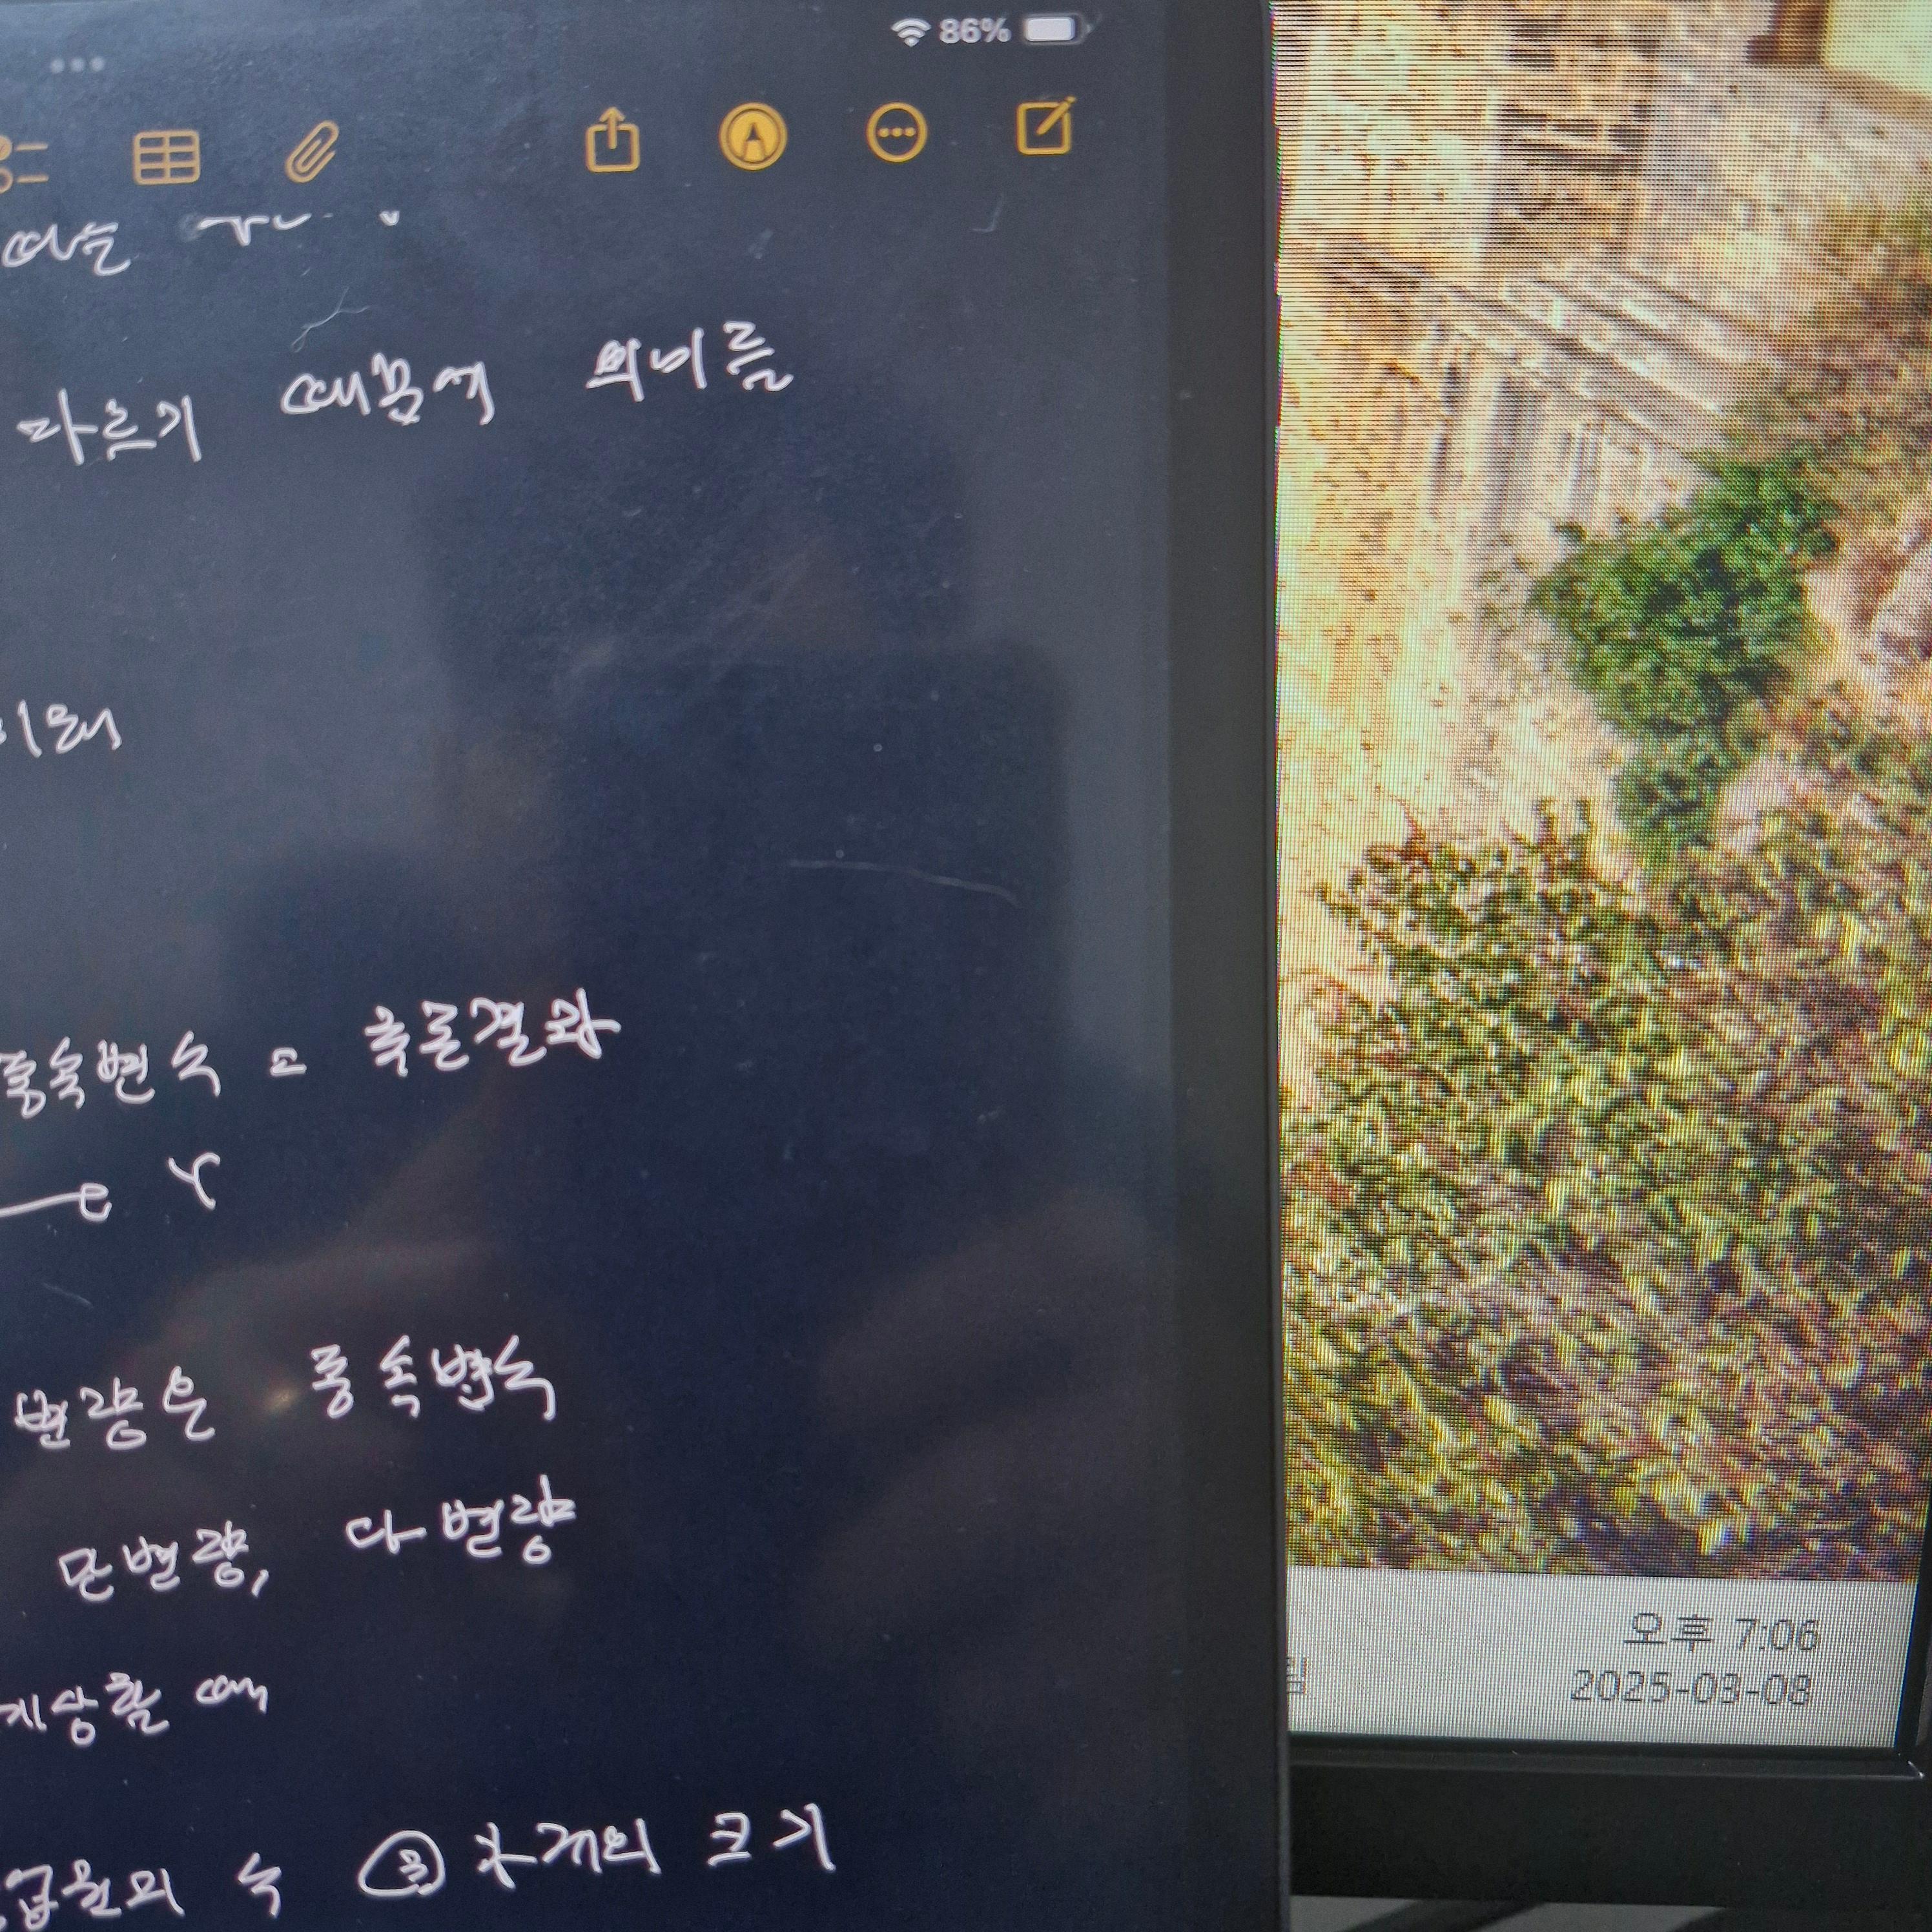 86%
다르기 때문에 의미를
종속변수 = 추론결과
Y
변량은 종속변수
단변량, 다변량
계상할 때
수 ③ 차이의 크기
오후 7:06
2025-03-08